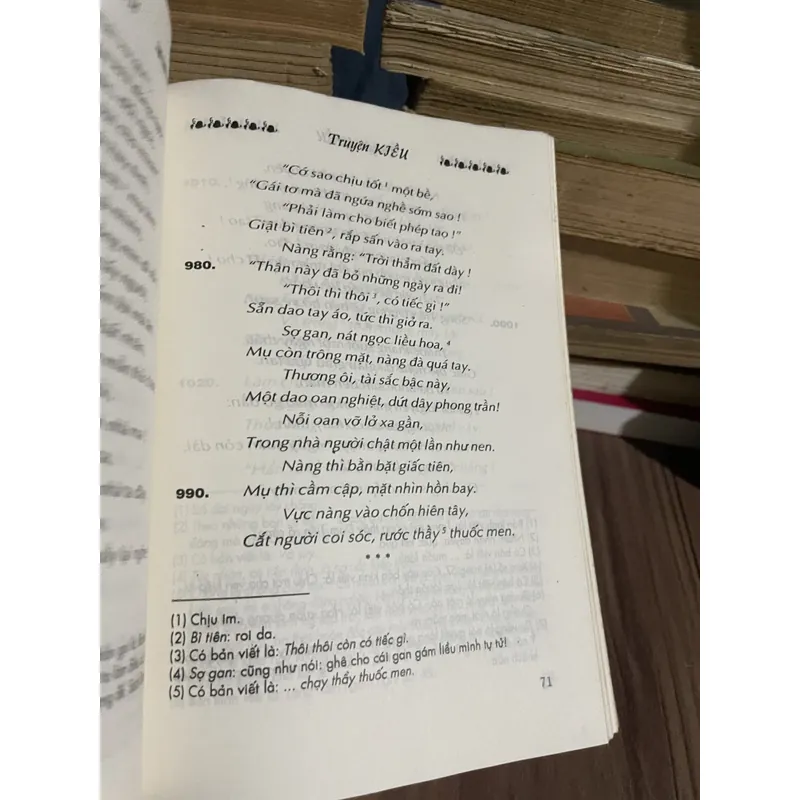 Truyện KIỀU
"Cớ sao chịu tốt ¹ một bề,
"Gái tơ mà đã ngứa nghề sớm sao !
"Phải làm cho biết phép tao !"
Giật bì tiên ², rắp sấn vào ra tay.
Nàng rằng: "Trời thẳm đất dày !
980. "Thân này đã bỏ những ngày ra đi!
"Thôi thì thôi ³, có tiếc gì !"
Sẵn dao tay áo, tức thì giở ra.
Sợ gan, nát ngọc liều hoa, ⁴
Mụ còn trông mặt, nàng đà quá tay.
Thương ôi, tài sắc bậc này,
Một dao oan nghiệt, dứt dây phong trần!
Nỗi oan vỡ lở xa gần,
Trong nhà người chật một lần như nen.
Nàng thì bằn bặt giấc tiên,
990. Mụ thì cầm cập, mặt nhìn hồn bay.
Vực nàng vào chốn hiên tây,
Cắt người coi sóc, rước thầy ⁵ thuốc men.
***
(1) Chịu im.
(2) Bì tiên: roi da.
(3) Có bản viết là: Thôi thôi còn có tiếc gì.
(4) Sợ gan: cũng như nói: ghê cho cái gan gám liều mình tự tử!
(5) Có bản viết là: ... chạy thầy thuốc men.
71